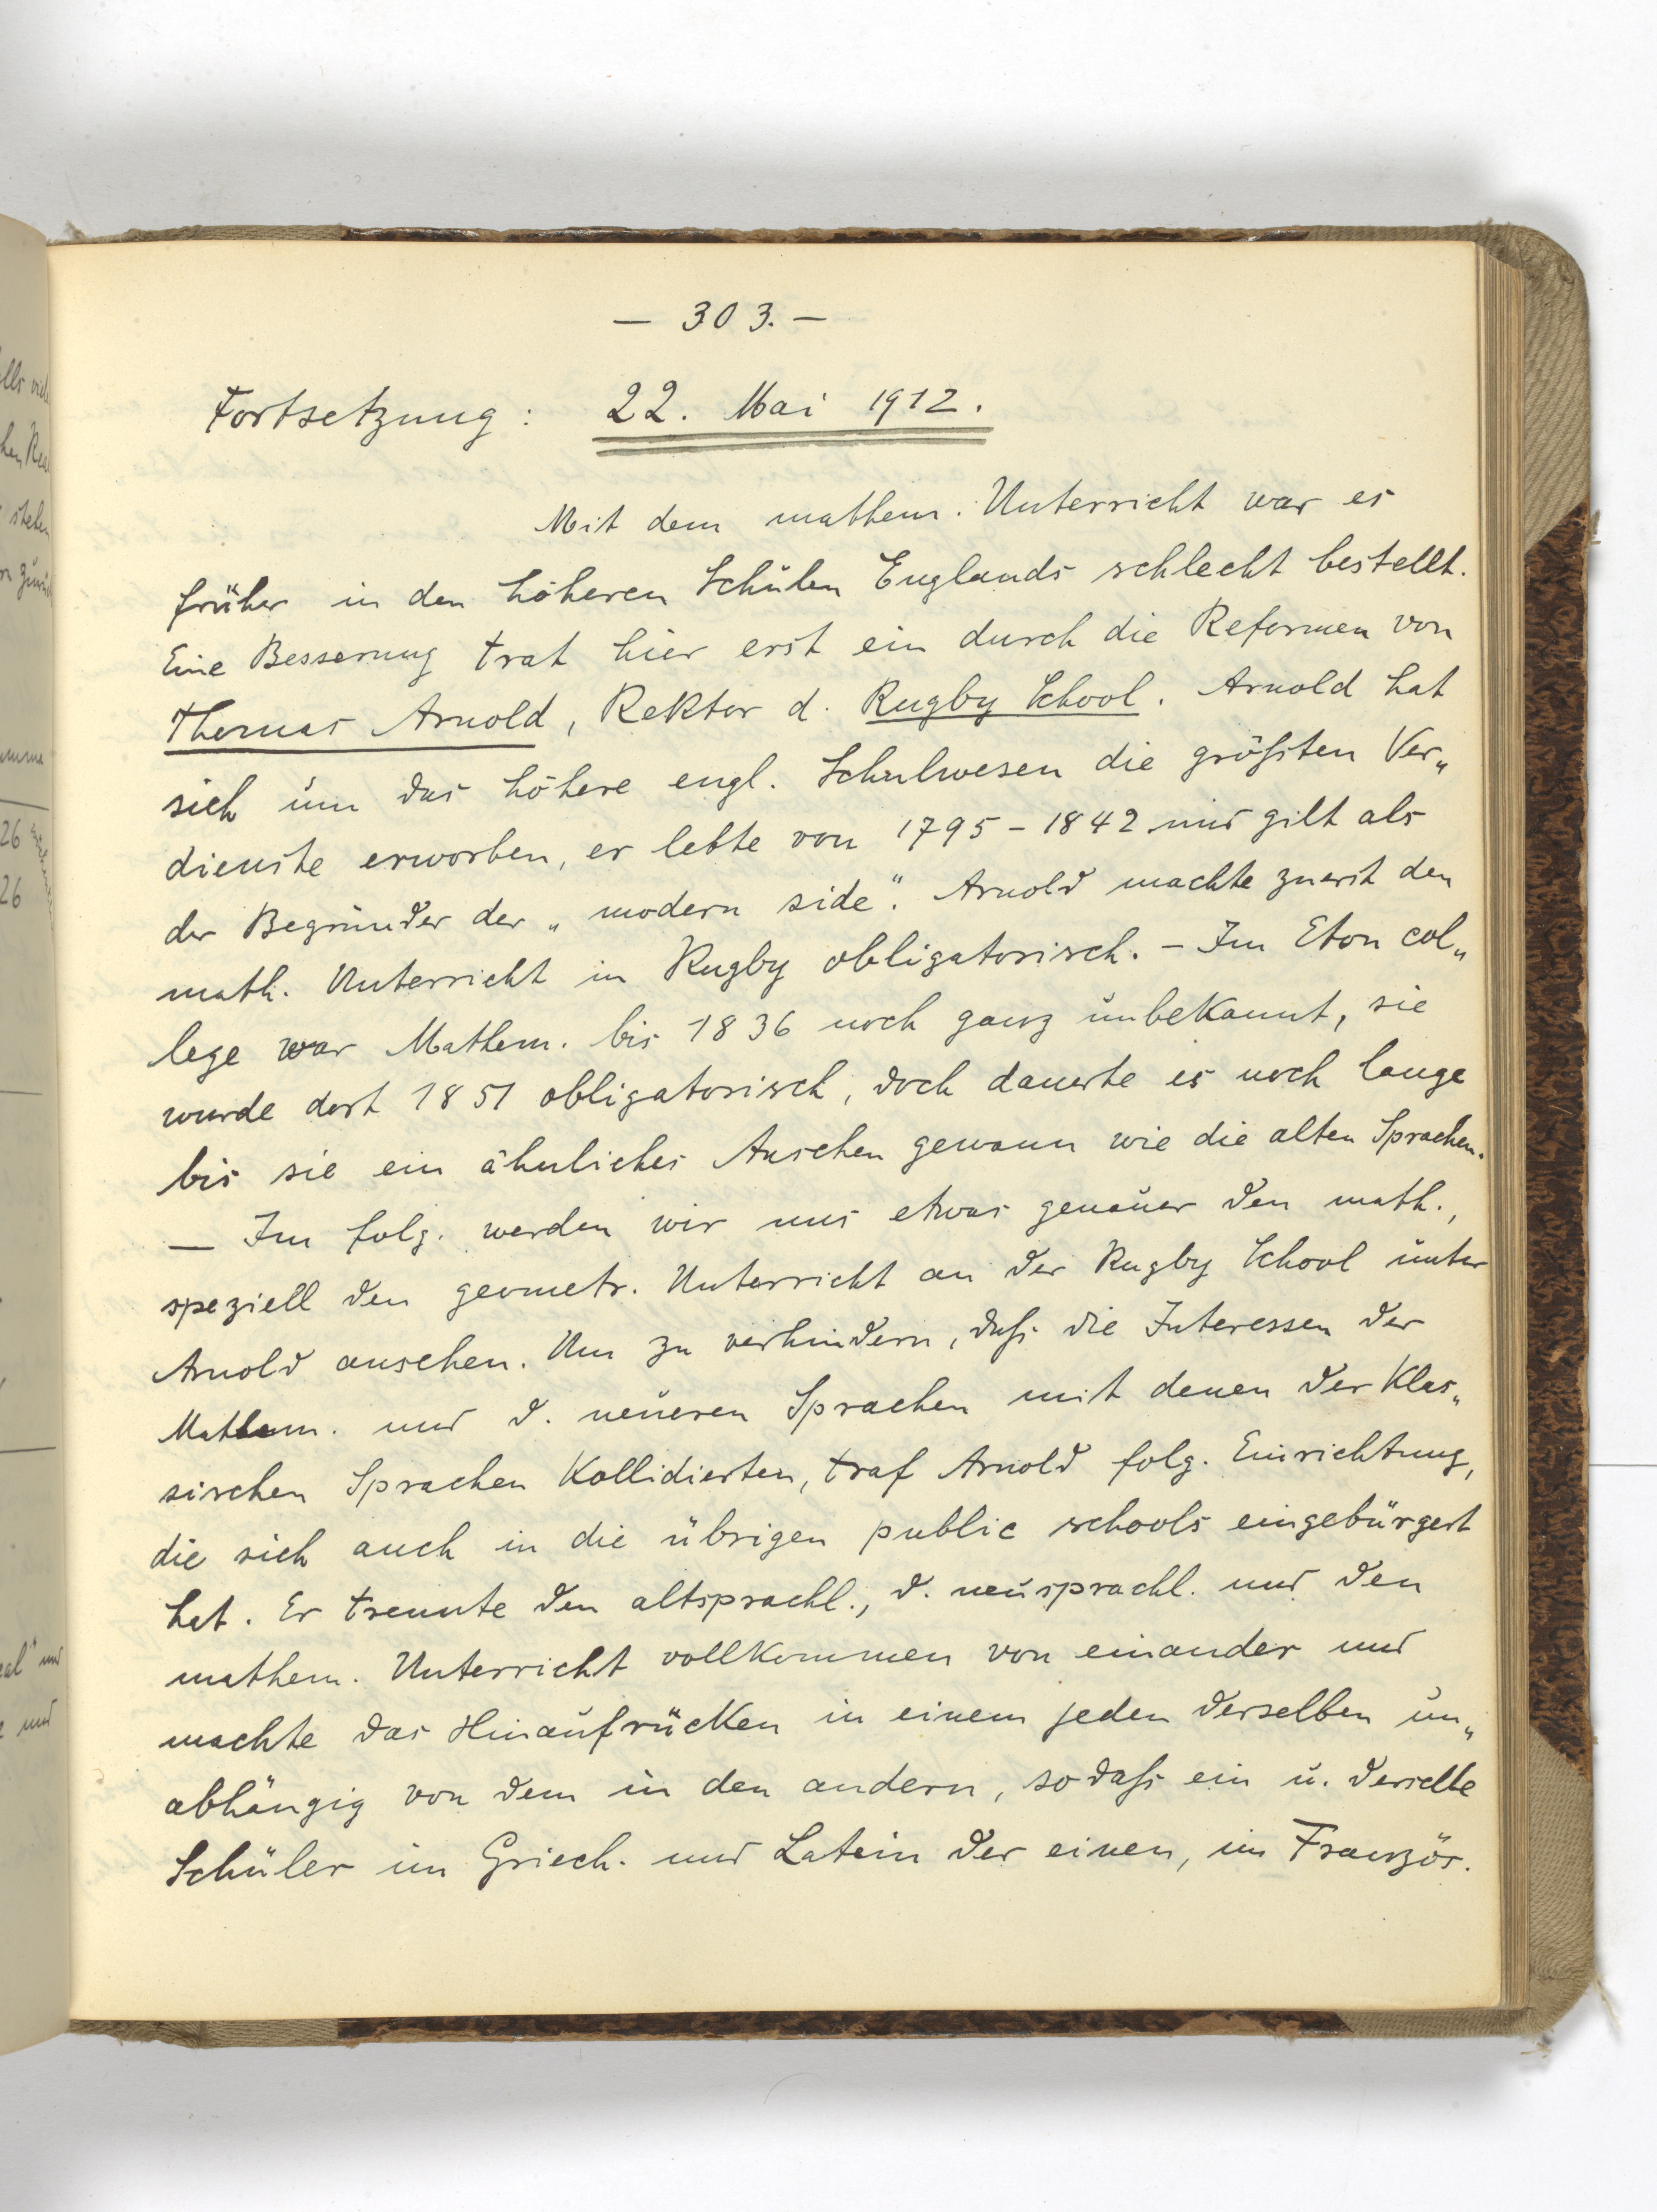 — 303. —
Fortsetzung: 22. Mai 1912.
Mit dem mathem. Unterricht war es
früher in den höheren Schulen Englands schlecht bestellt.
Eine Besserung trat hier erst ein durch die Reformen von
Thomas Arnold, Rektor d. Rugby School. Arnold hat
sich um das höhere engl. Schulwesen die größten Ver„
dienste erworben, er lebte von 1795 - 1842 und gilt als
der Begründer der „modern side". Arnold machte zuerst den
math. Unterricht in Rugby obligatorisch. - Im Eton col„
lege war Mathem. bis 1836 noch ganz unbekannt, sie
wurde dort 1851 obligatorisch, doch dauerte es noch lange
bis sie ein ähnliches Ansehen gewann wie die alten Sprachen.
— Im folg. werden wir uns etwas genauer den math.,
speziell den geometr. Unterricht an der Rugby School unter
Arnold ansehen. Um zu verhindern, daß die Interessen der
Mathem. und d. neueren Sprachen mit denen der Klas„
sischen Sprachen Kollidierten, traf Arnold folg. Einrichtung,
die sich auch in die übrigen public schools eingebürgert
hat. Er trennte den altsprachl., d. neusprachl. und den
mathem. Unterricht vollkommen von einander und
machte das Hinaufrücken in einem jeden derselben un„
abhängig von dem in den andern, sodaß ein u. derselbe
Schüler im Griech. und Latein der einen, im Französ.
26
26
und
und